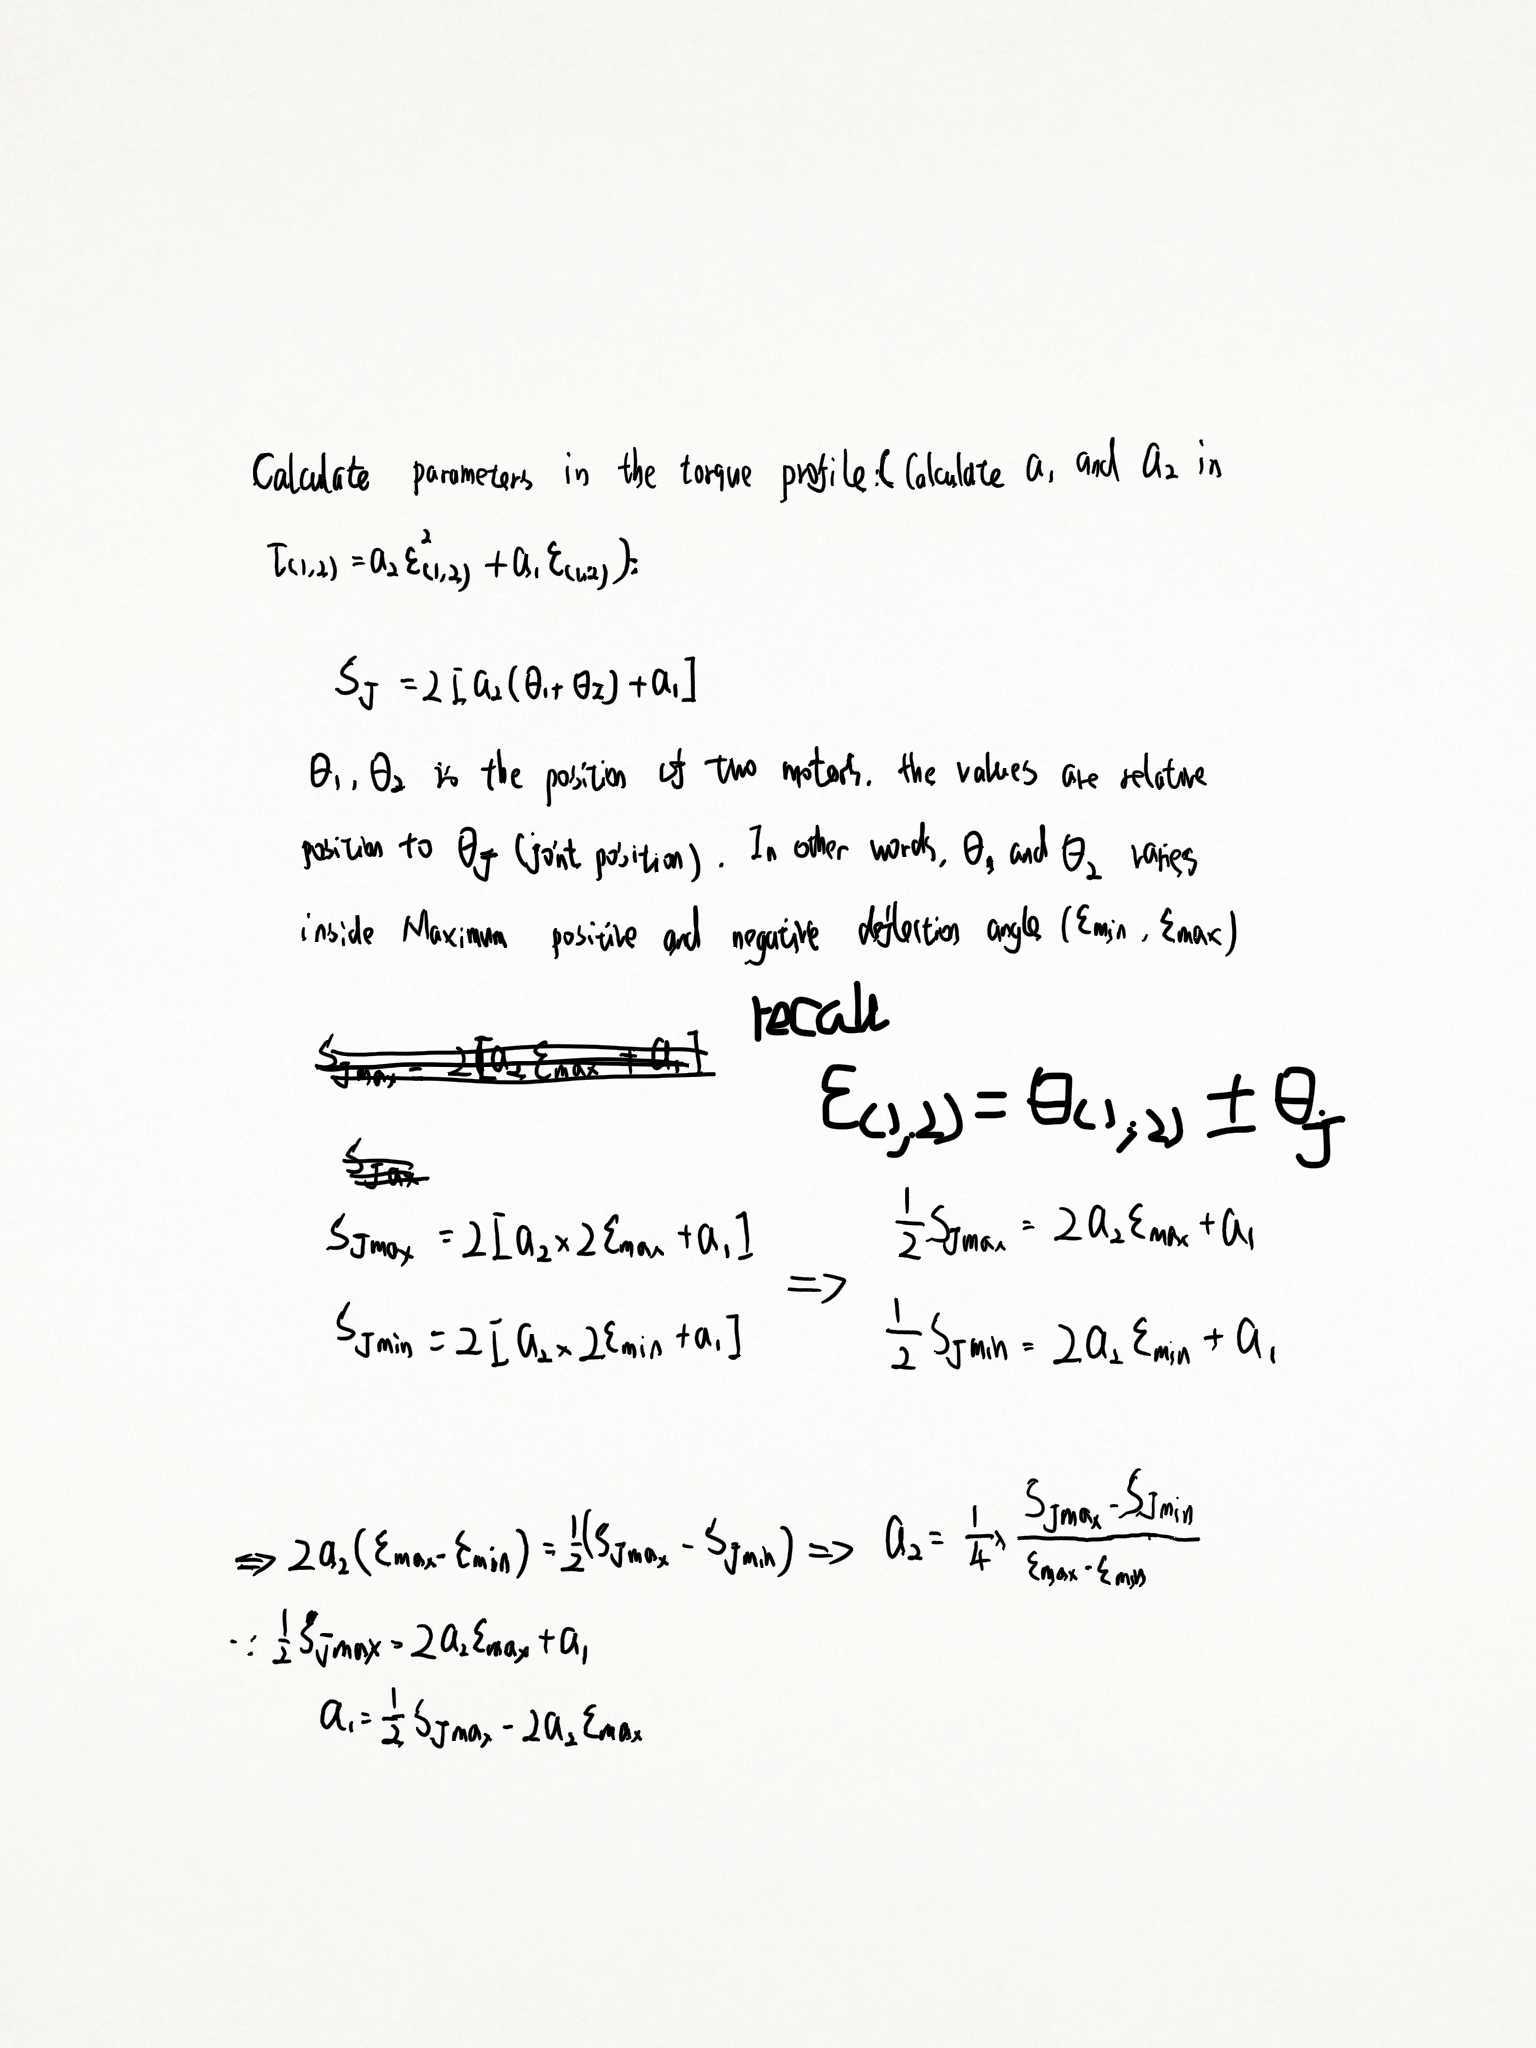 Calculate parameters in the torque profile:( Calculate a₁ and a₂ in
τ(1,2) = a₂ε²(1,2) + a₁ε(1,2)):
S_J = 2[a₂(θ₁+θ₂)+a₁]
θ₁, θ₂ is the position of two motors. the values are relative
position to θ_J (joint position). In other words, θ₁ and θ₂ varies
inside Maximum positive and negative deflection angle (εmin, εmax)
recall
S_Jmax = 2[a₂ εmax + a₁]
ε(1,2) = θ(1,2) ± θj
S_Jmax
S_Jmax = 2[a₂×2εmax + a₁]
S_Jmin = 2[a₂×2εmin + a₁]
=>
1/2 S_Jmax = 2a₂εmax + a₁
1/2 S_Jmin = 2a₂εmin + a₁
=> 2a₂(εmax - εmin) = 1/2(S_Jmax - S_Jmin) => a₂ = 1/4 × (S_Jmax - S_Jmin)/(εmax - εmin)
∵ 1/2 S_Jmax = 2a₂εmax + a₁
a₁ = 1/2 S_Jmax - 2a₂εmax